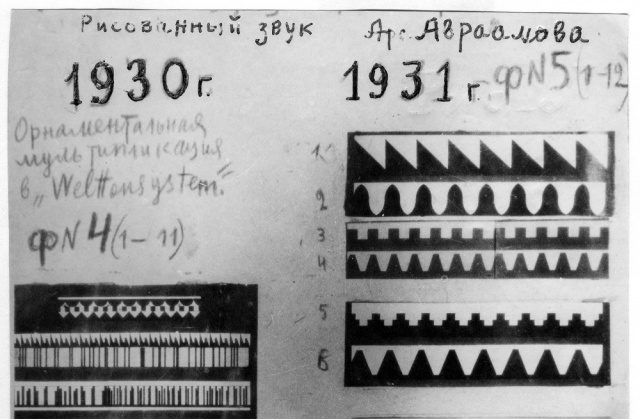 Рисованный звук
Арс. Авраамова
1930г.
1931г. фN5 (1-12)
Орнаментальная
мультипликация
в „Welttonsystem."
фN4 (1-11)
1
2
3
4
5
6